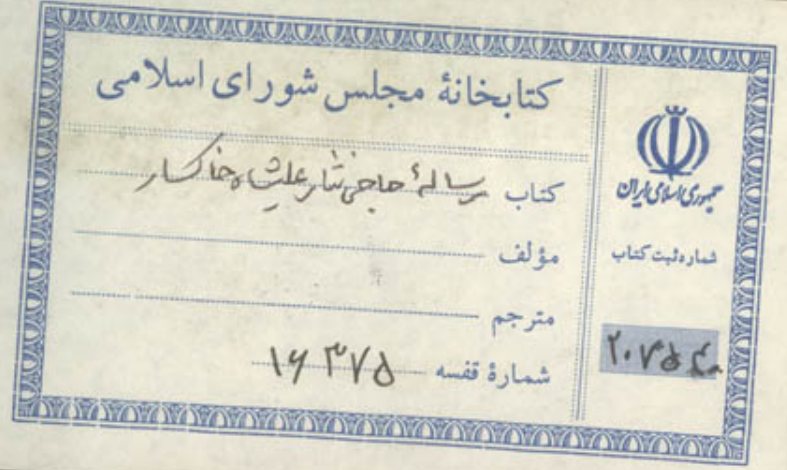 کتابخانهٔ مجلس شورای اسلامی
کتاب رسالهٔ حاجی نثار علیشاه خاکسار
مؤلف
مترجم
شمارهٔ قفسه ۱۶۳۷۵
جمهوری اسلامی ایران
شماره ثبت کتاب
۲۰۷۵۴۰